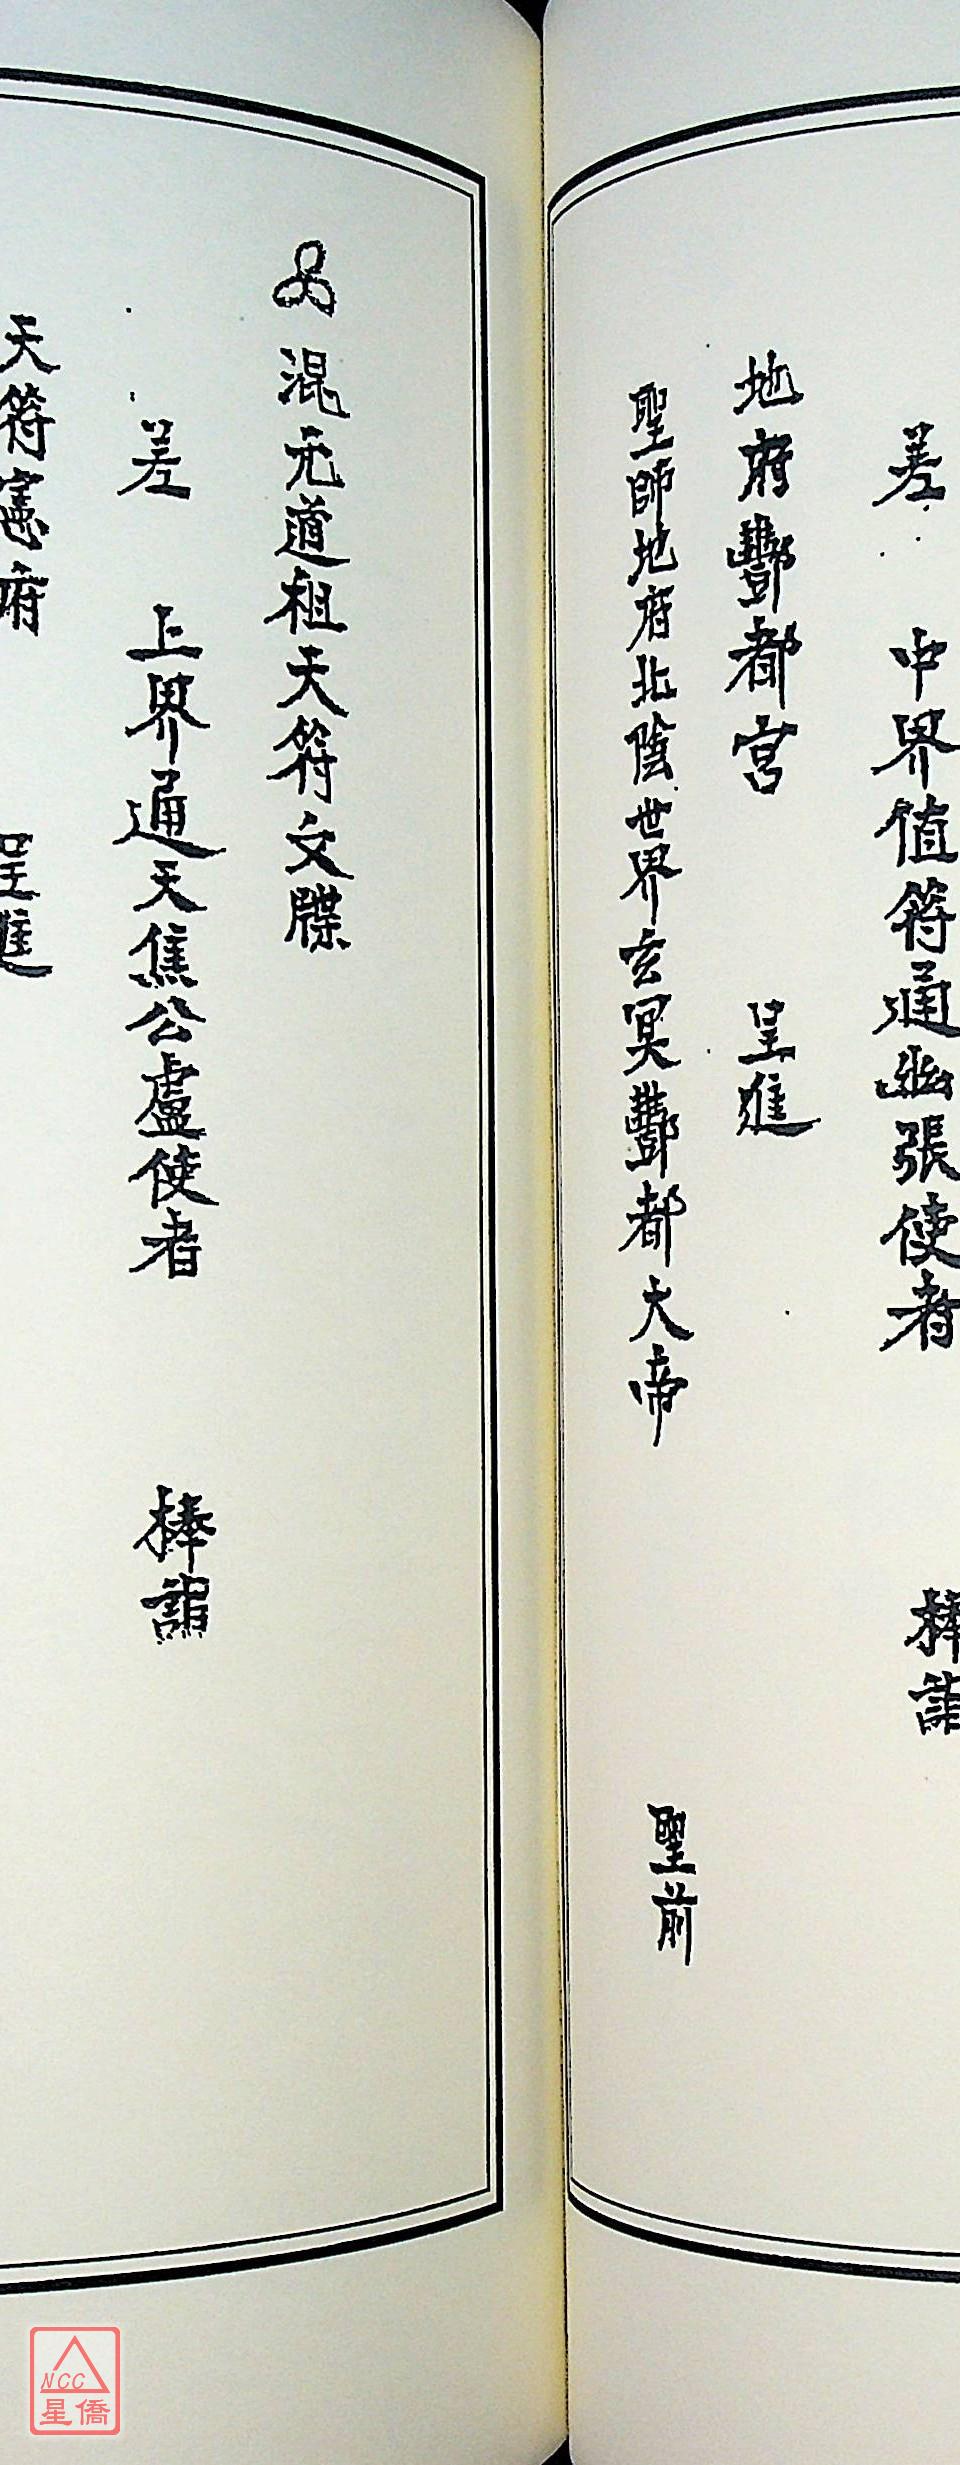 差 中界值符通幽張使者 捧詣
地府酆都宮 呈進
聖師地府北陰世界玄冥酆都大帝 聖前
混元道祖天符文牒
差 上界通天焦公盧使者 捧詣
天符憲府 呈進
NCC
星僑